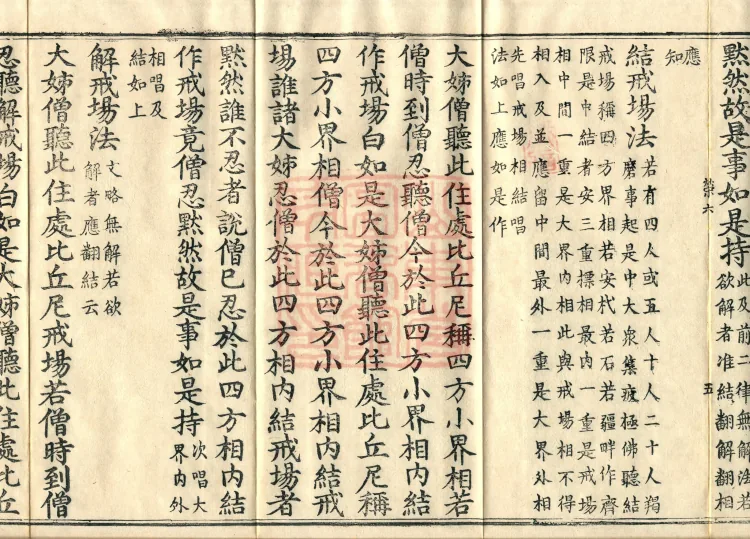 默然故是事如是持
此及前二律無解法若
欲解者准結翻解翻相
應
知
六
五
結戒場法
若有四人或五人十人二十人羯
磨事起是中大衆集疲極佛聽結
戒場稱四方界相若安杙若石若疆畔作齊
限是中結者安三重摽相最内一重是戒場
相中間一重是大界内相此與戒場相不得
相入及並應留中間最外一重是大界外相
先唱戒場相結唱
法如上應如是作
大姊僧聽此住處比丘尼稱四方小界相若
僧時到僧忍聽僧今於此四方小界相内結
作戒場白如是大姊僧聽此住處比丘尼稱
四方小界相僧今於此四方小界相内結戒
場誰諸大姊忍僧於此四方相内結戒場者
默然誰不忍者說僧已忍於此四方相内結
作戒場竟僧忍默然故是事如是持
次唱大
界内外
相唱及
結如上
解戒場法
文略無解若欲
解者應翻結云
大姊僧聽此住處比丘尼戒場若僧時到僧
忍聽解戒場白如是大姊僧聽此住處比丘